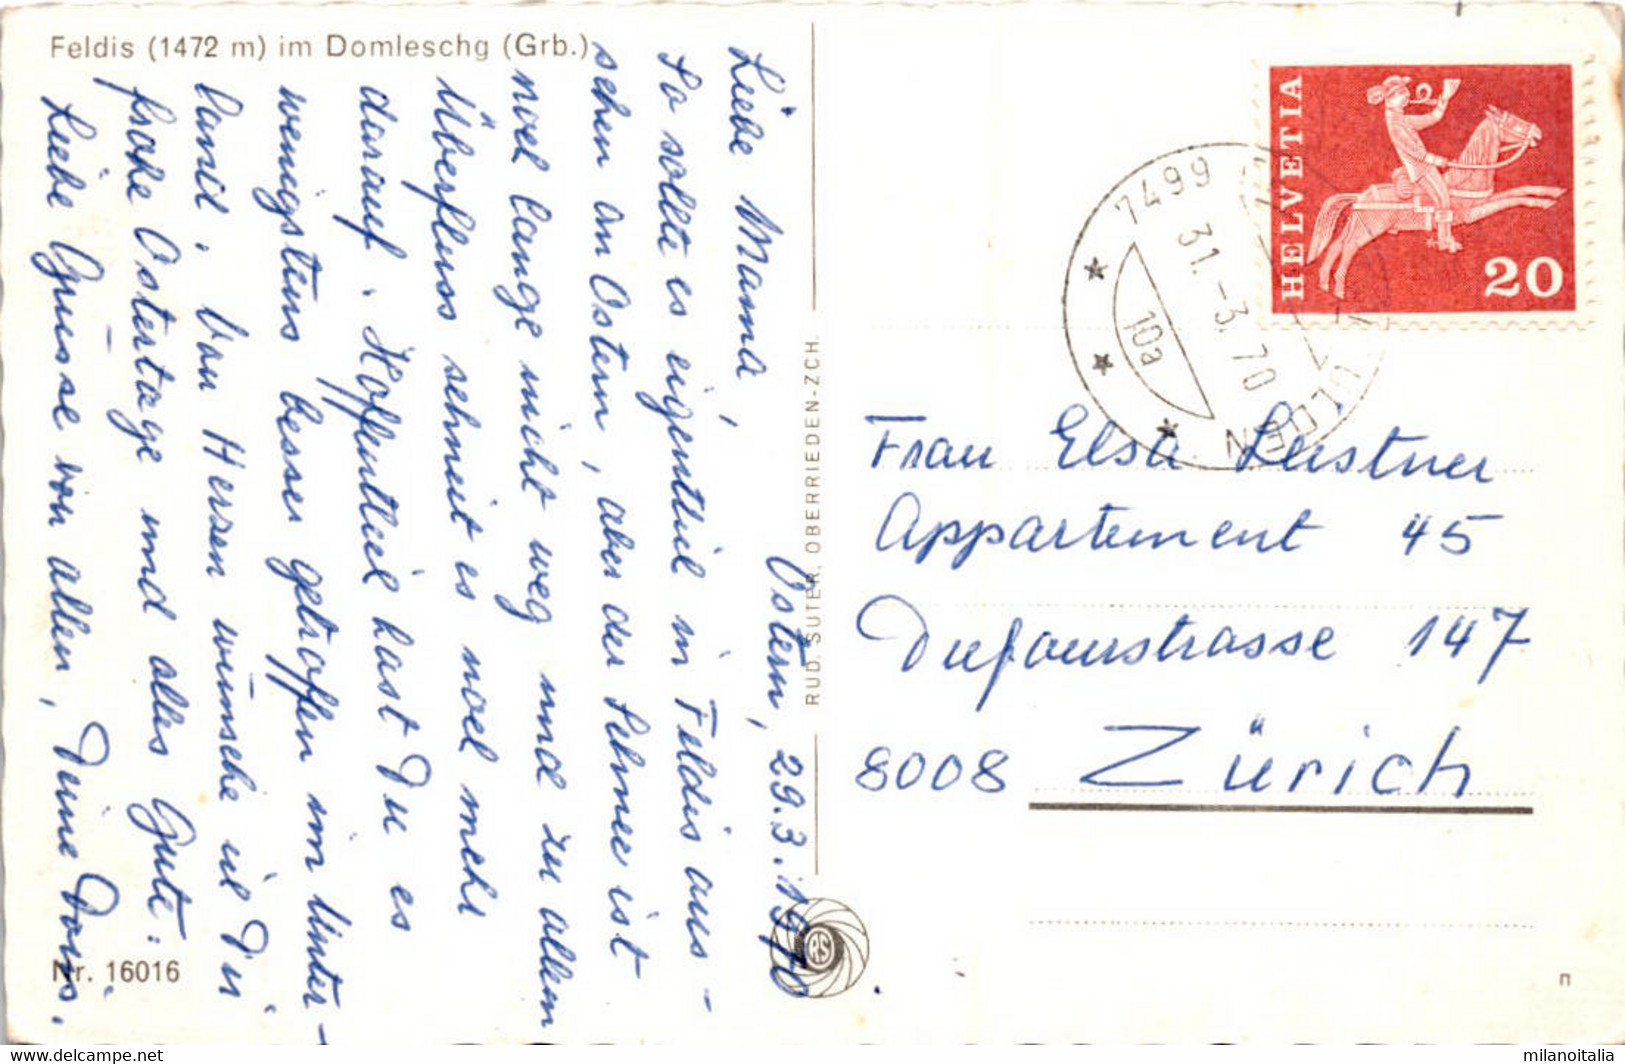 Feldis (1472 m) im Domleschg (Grb.)
Ostern, 29.3.1970
Liebe Mama,
So sollte es eigentlich in Feldis aus-
sehen an Ostern, aber der Schnee ist
noch lange nicht weg und zu allem
Überfluss schneit es noch mehr
darauf. Hoffentlich hast Du es
wenigstens besser getroffen im Unter-
land. Von Herzen wünsche ich Dir
frohe Ostertage und alles Gute.
Liebe Grüsse von allen, Deine Doris.
Nr. 16016
RUD. SUTER, OBERRIEDEN-ZCH.
RS
HELVETIA
20
7499
31.-3.70
10a
Frau Elsa Leistner
Appartement 45
Dufourstrasse 147
8008 Zürich
n
milanoitalia